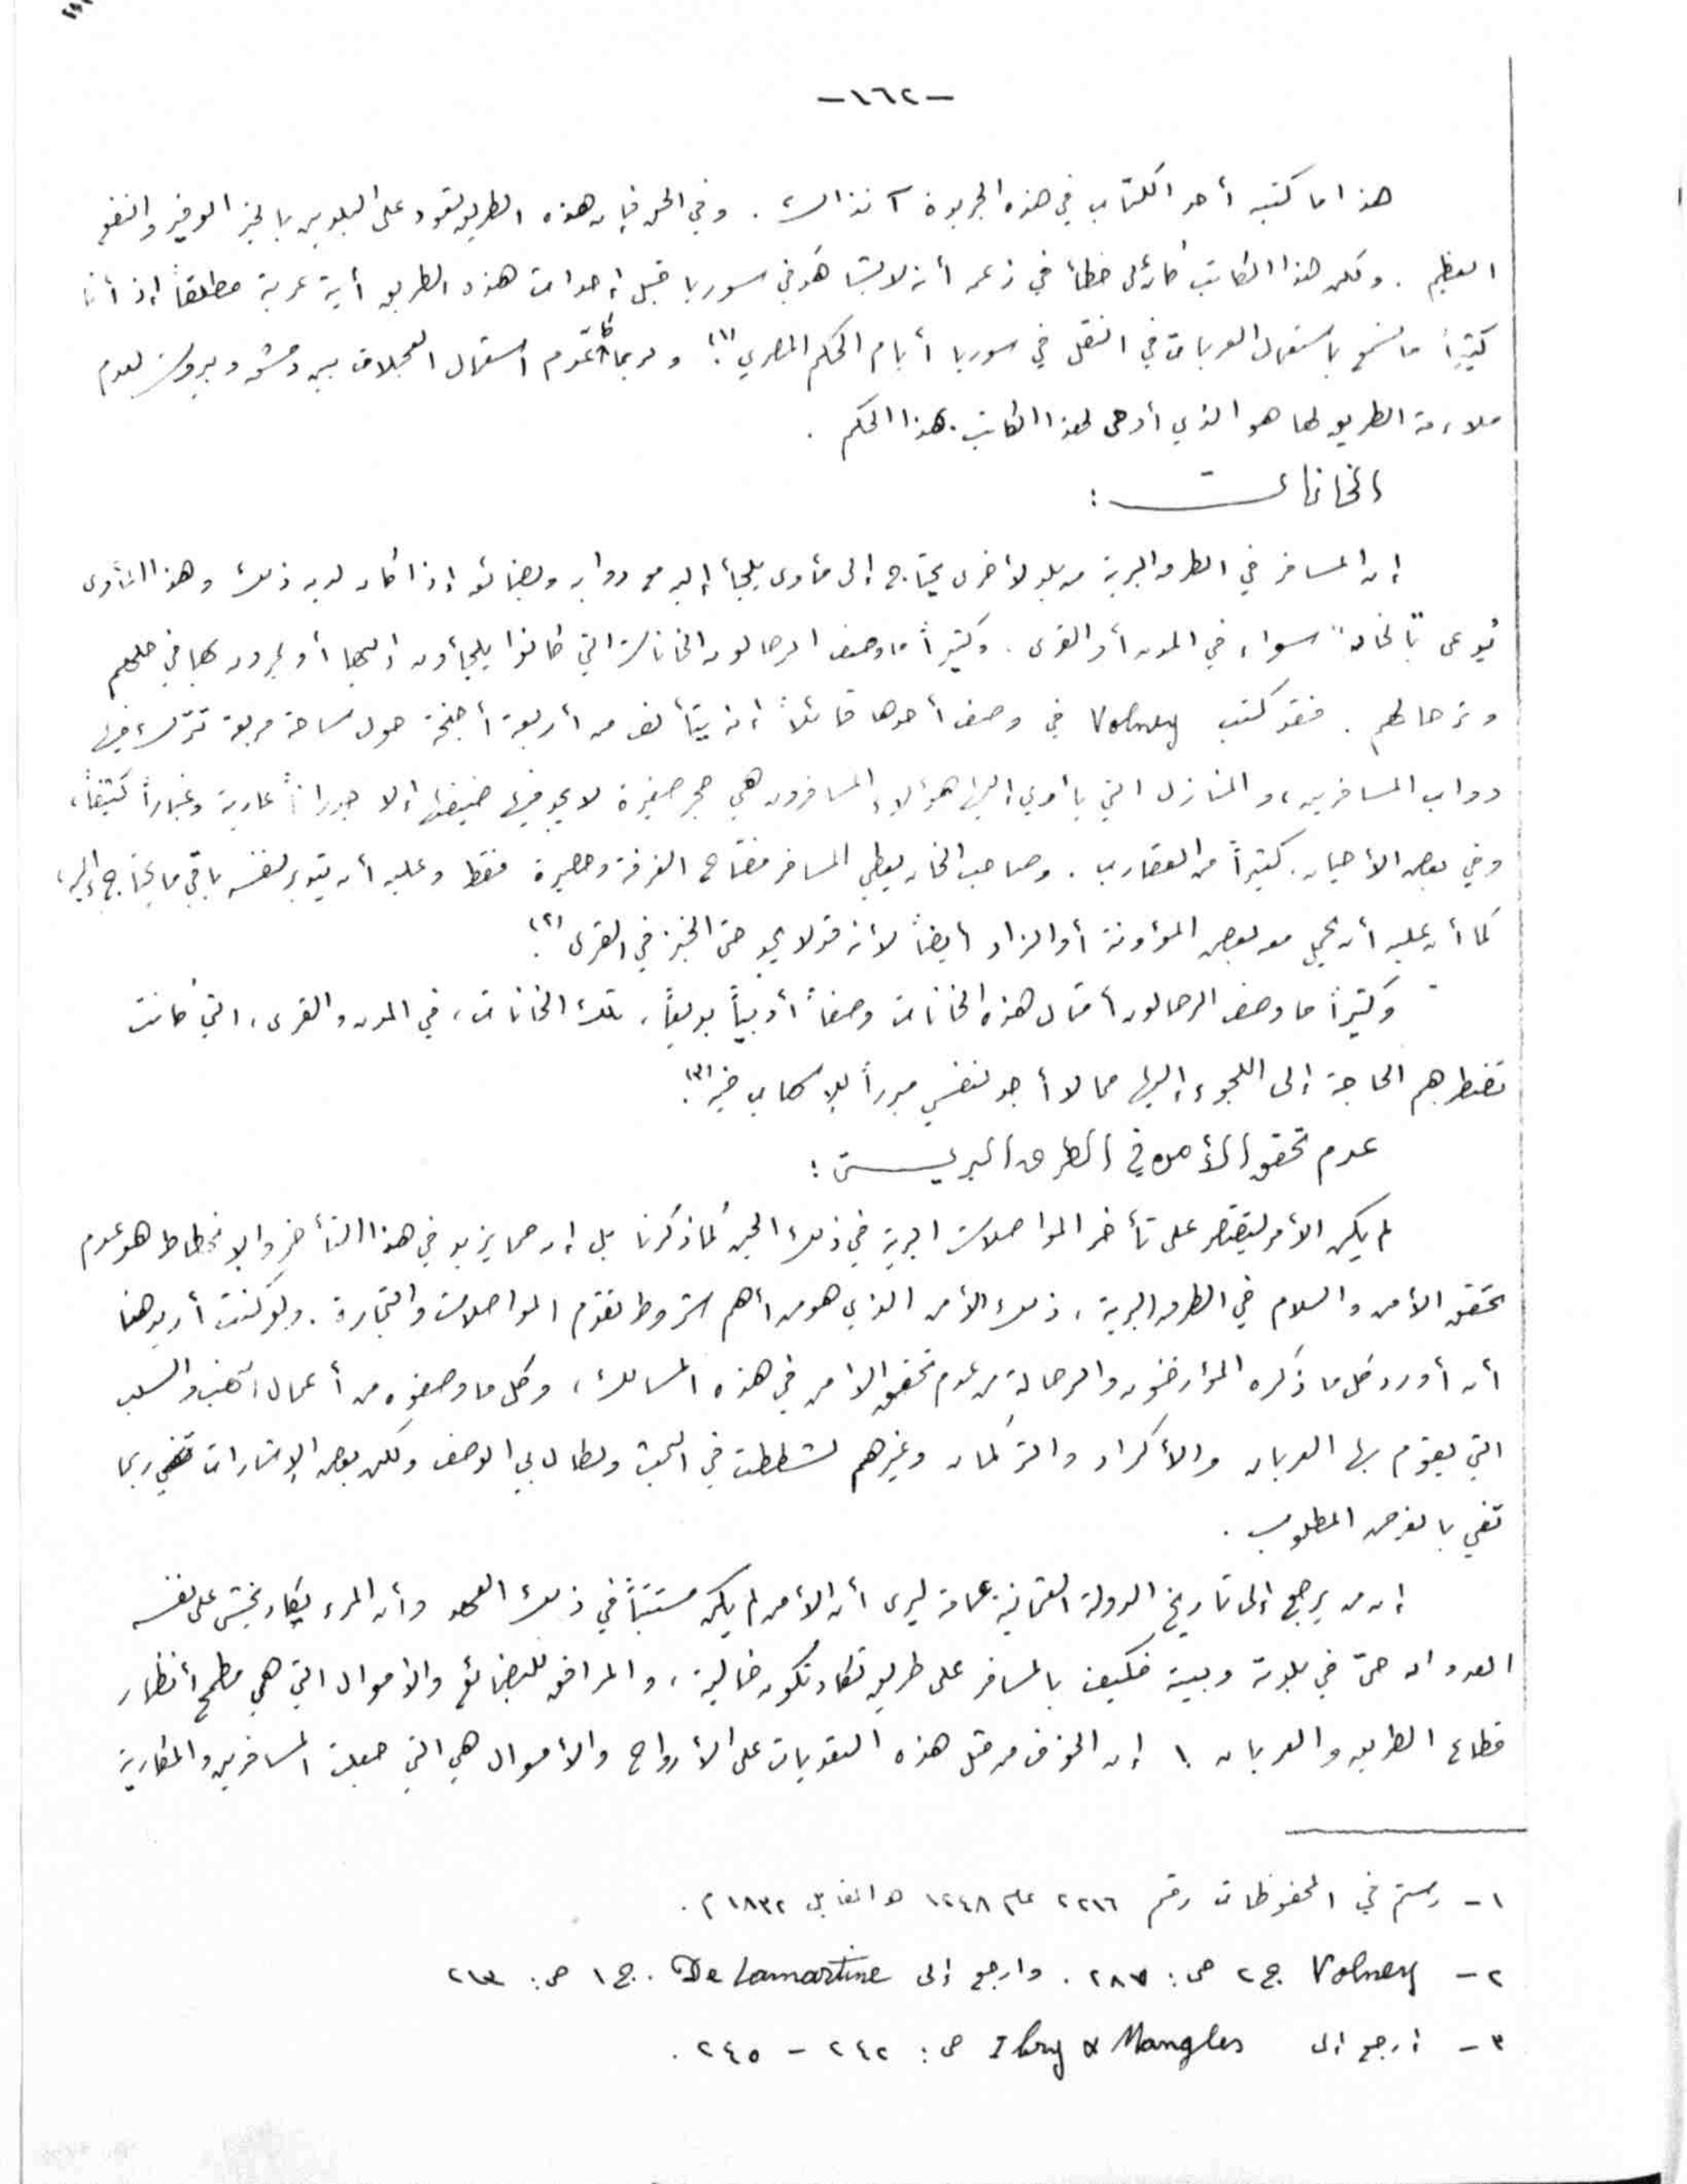 -١٦٢-
هذا ما كتبه أحد الكتّاب في هذه الجريدة آنذاك . وفي الحق فإن هذه الطريق تعود على البلدين بالخير الوفير والنفع
العظيم . ولكن هذا الكاتب كان على خطأ في زعمه أنه لا يشاهد في سوريا قبل إحداث هذه الطريق أية عربة مطلقاً إذ أننا
كثيراً ما نسمع باستعمال العربات في النقل في سوريا أيام الحكم المصري (١). ولربما كان عدم استعمال العجلات بين دمشق وبيروت لعدم
ملاءمة الطريق لها هو الذي أوحى لهذا الكاتب بهذا الحكم .
الخانات :
إن المسافر في الطرق البرية من بلد لأخرى يحتاج إلى مأوى يلجأ إليه مع دوابه وبضائعه إذا كان لديه ذلك وهذا المأوى
يُدعى "بالخان" سواء في المدن أو القرى . وكثيراً ما وصف الرحالون الخانات التي كانوا يلجأون إليها أو يمرون بها في حلهم
وترحالهم . فقد كتب Volney في وصف أحدها قائلاً أنه يتألف من أربعة أجنحة حول ساحة مربعة تترك فيها
دواب المسافرين، والمنازل التي يأوي إليها هؤلاء المسافرون هي حجر صغيرة لا يجد فيها ضيفها إلا جدراناً عارية وغباراً كثيفاً،
وفي بعض الأحيان كثيراً من العقارب . وصاحب الخان يعطي المسافر مفتاح الغرفة وحصيرة فقط وعليه أن يتدبر لنفسه باقي ما يحتاج إليه،
كما أن عليه أن يحمل معه بعض المؤونة أو الزاد أيضاً لأنه قد لا يجد حتى الخبز في القرى (٢).
وكثيراً ما وصف الرحالون أمثال هذه الخانات وصفاً أدبياً بديعاً، تلك الخانات، في المدن والقرى، التي كانت
تضطرهم الحاجة إلى اللجوء إليها مما لا أجد لنفسي مبرراً للإسهاب فيه (٣).
عدم تحقق الأمن في الطرق البرية :
لم يكن الأمر ليقتصر على تأخر المواصلات البرية في ذلك الحين كما ذكرنا بل إن مما يزيد في هذا التأخر والانحطاط هو عدم
تحقق الأمن والسلام في الطرق البرية، ذلك الأمر الذي هو من أهم شروط تقدم المواصلات والتجارة . ولو كنت أريد هنا
أن أورد كل ما ذكره المؤرخون والرحالة من عدم تحقق الأمن في هذه المسالك، وكل ما وصفوه من أعمال النهب والسلب
التي يقوم بها العربان والأكراد والتركمان وغيرهم لشططت في البحث ولطال بي الوصف ولكن بعض الإشارات ربما
تفي بالغرض المطلوب .
إن من يرجع إلى تاريخ الدولة العثمانية عامة ليرى أن الأمن لم يكن مستتباً في ذلك العهد وأن المرء يكاد يخشى على نفسه
العدوان حتى في بلدته وبيته فكيف بالمسافر على طريق تكاد تكون خالية، والمرافق للبضائع والأموال التي هي مطمح أنظار
قطاع الطريق والعربان ! إن الخوف من مثل هذه التعديات على الأرواح والأموال هي التي جعلت المسافرين والمكارية
١ - رستم في المحفوظات رقم ٢٢١٦ عام ١٢٤٨ هـ المقابل ١٨٣٢ م .
٢ - Volney ج ٢ ص: ٢٨٧ . وارجع إلى De Lamartine . ج ١ ص: ٢١٣
٣ - ارجع إلى Irby & Mangles ص: ٢٤٢ - ٢٤٥ .